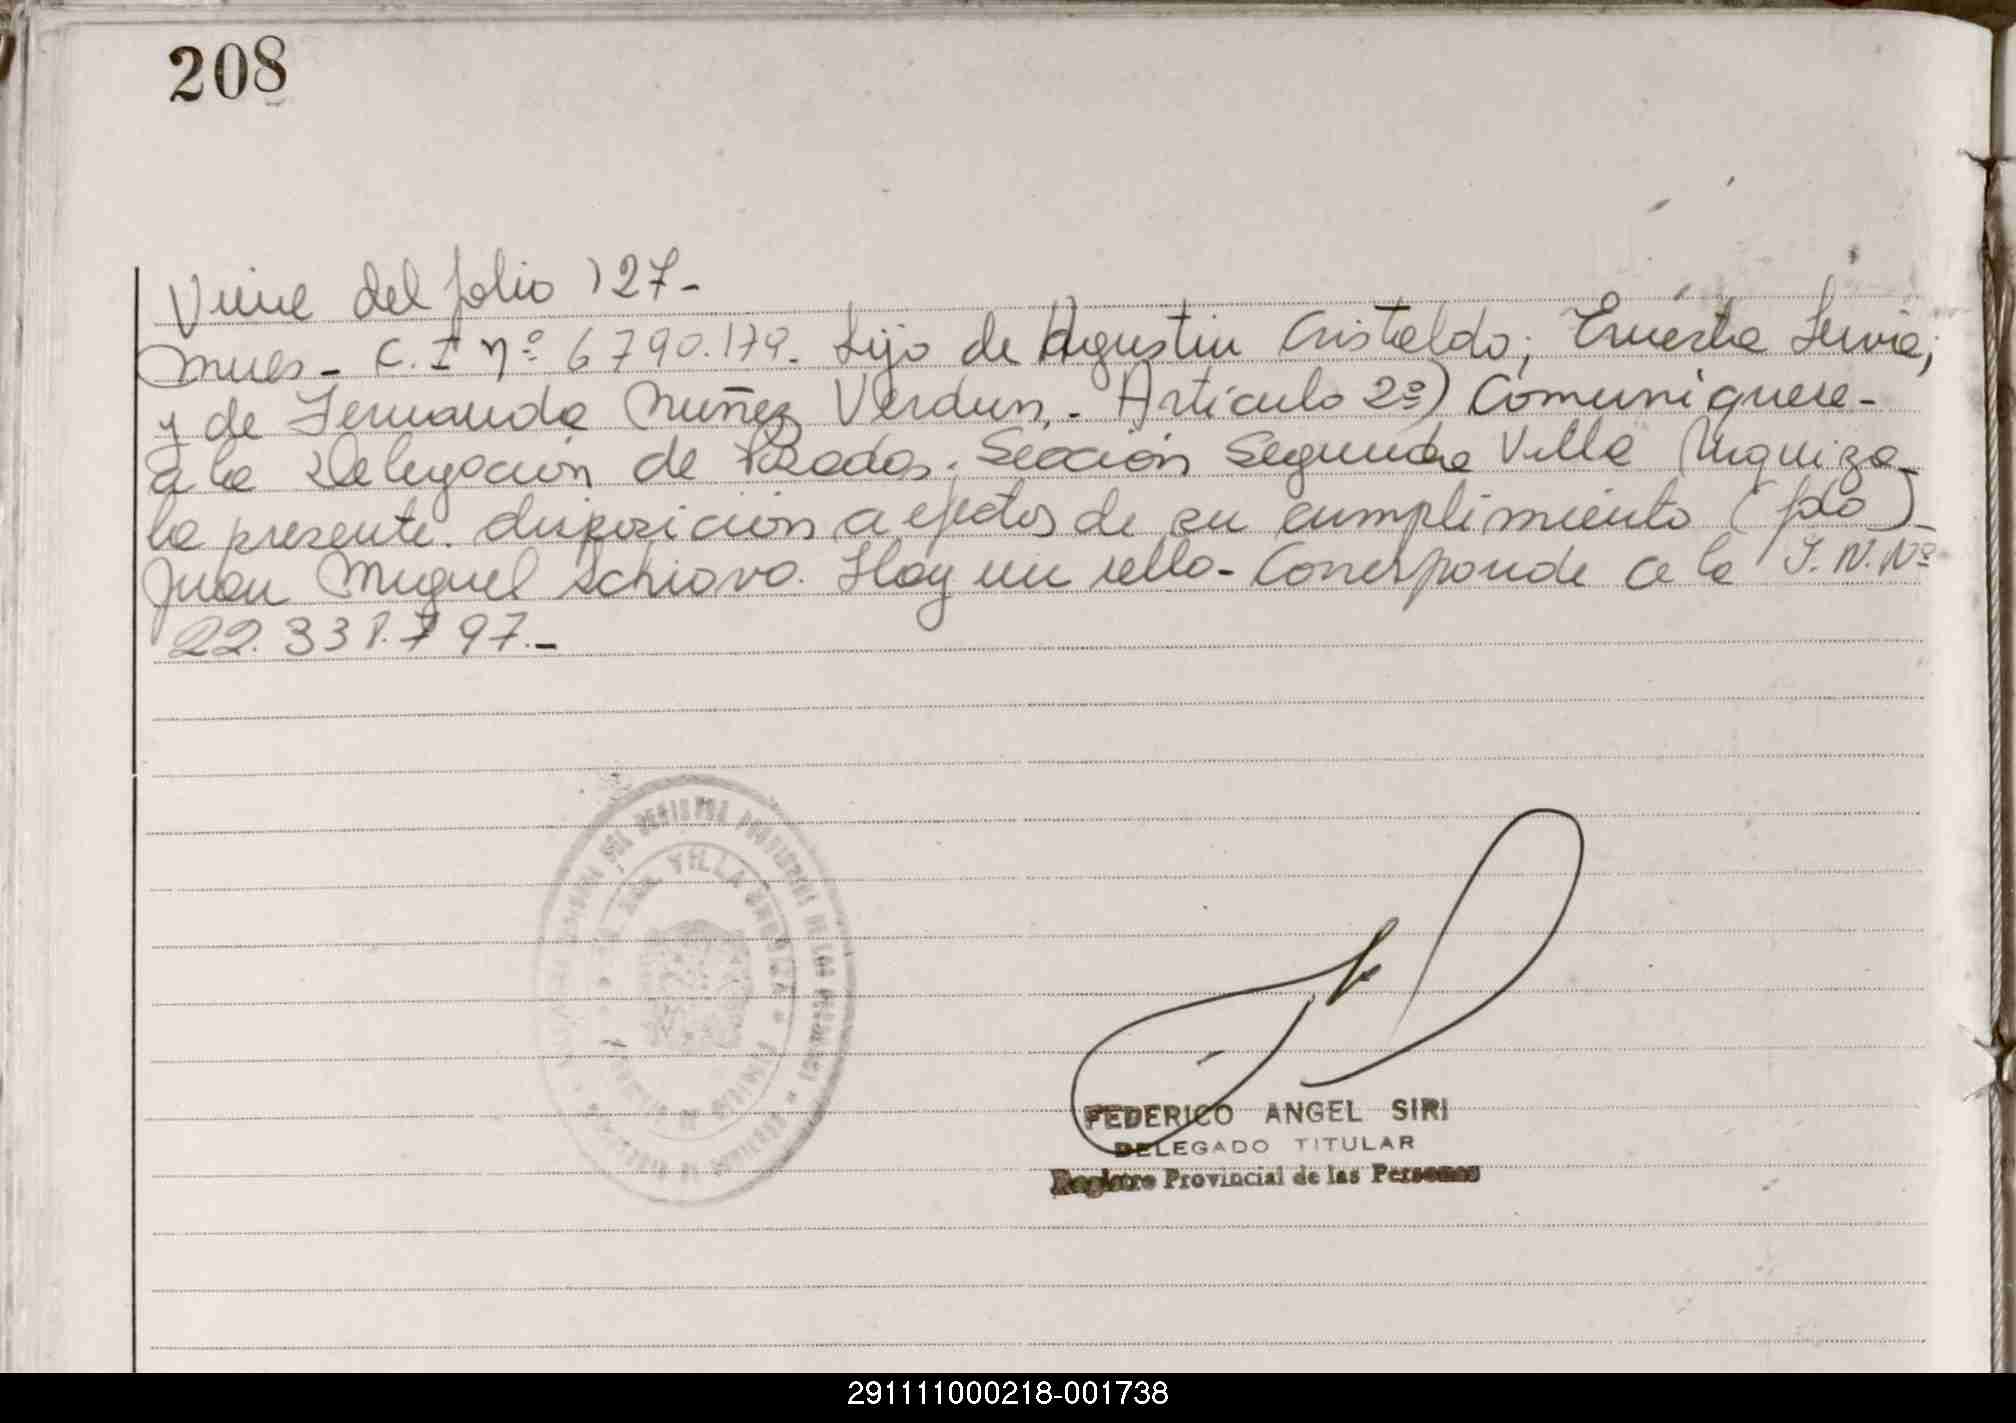 208
Viene del folio 127-
nues - C.I nº 6790.179. hijo de Agustin Cristaldo; Ernesta Servia;
y de Fernanda Nuñez Verdun. - Artículo 2º) Comuniquese-
a la Delegación de Posadas. Sección Segunda Villa Urquiza
la presente. disposición a efectos de su cumplimiento (fdo)
Juan Miguel Schiavo. Hay un sello - Corresponde a la I.N.Nº
22.331.797.-
VILLA URQUIZA
FEDERICO ANGEL SIRI
DELEGADO TITULAR
Registro Provincial de las Personas
291111000218-001738